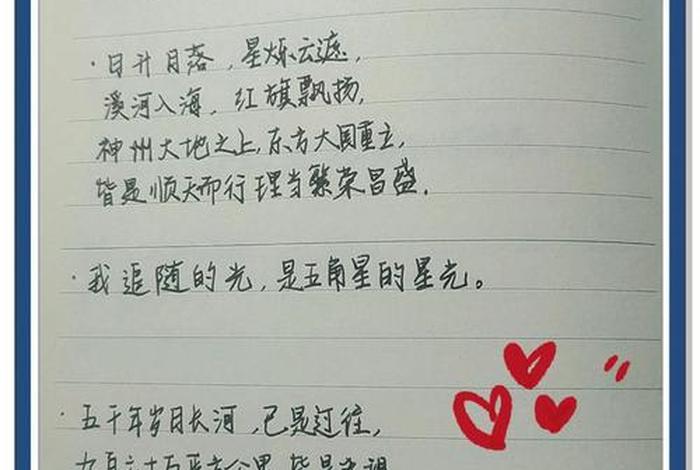 ·日升月落，星烁云遮，
溪河入海，红旗飘扬，
神州大地之上，东方大国重立，
皆是顺天而行理当繁荣昌盛．
·我追随的光，是五角星的星光。
·五千年岁日长河，已是过往，
九百六十万平方公里，皆是